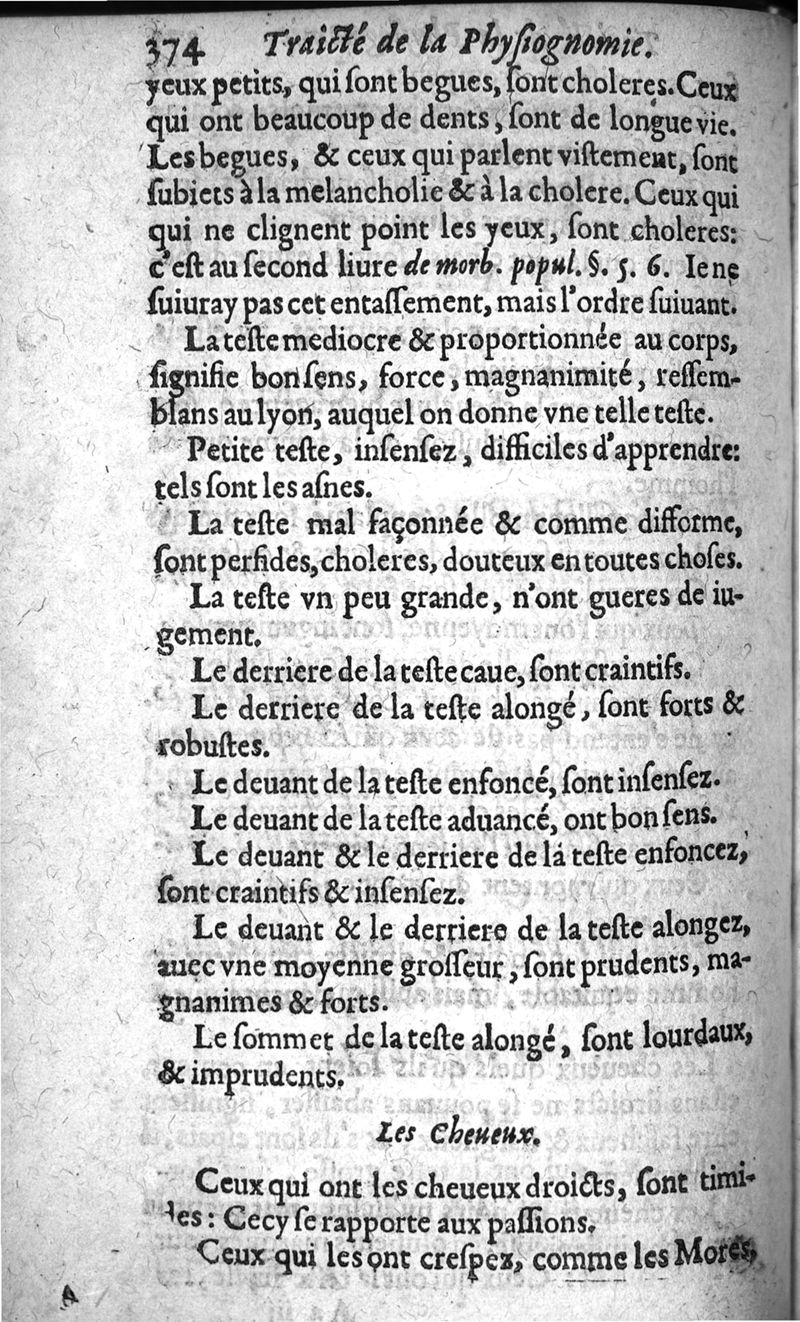 374 Traicté de la Phyſiognomie.
yeux petits, qui ſont begues, ſont choleres. Ceux
qui ont beaucoup de dents, ſont de longue vie.
Les begues, & ceux qui parlent viſtement, ſont
ſubiets à la melancholie & à la cholere. Ceux qui
qui ne clignent point les yeux, ſont choleres:
c'eſt au ſecond liure de morb. popul. §. 5. 6. Ie ne
ſuiuray pas cet entaſſement, mais l'ordre ſuiuant.
La teſte mediocre & proportionnée au corps,
ſignifie bon ſens, force, magnanimité, reſſem-
blans au lyon, auquel on donne vne telle teſte.
Petite teſte, inſenſez, difficiles d'apprendre:
tels ſont les aſnes.
La teſte mal façonnée & comme difforme,
ſont perfides, choleres, douteux en toutes choſes.
La teſte vn peu grande, n'ont gueres de iu-
gement.
Le derriere de la teſte caue, ſont craintifs.
Le derriere de la teſte alongé, ſont forts &
robuſtes.
Le deuant de la teſte enfoncé, ſont inſenſez.
Le deuant de la teſte aduancé, ont bon ſens.
Le deuant & le derriere de la teſte enfoncez,
ſont craintifs & inſenſez.
Le deuant & le derriere de la teſte alongez,
auec vne moyenne groſſeur, ſont prudents, ma-
gnanimes & forts.
Le ſommet de la teſte alongé, ſont lourdaux,
& imprudents.
Les Cheueux.
Ceux qui ont les cheueux droicts, ſont timi-
des: Cecy ſe rapporte aux paſſions.
Ceux qui les ont creſpez, comme les Mores,
A